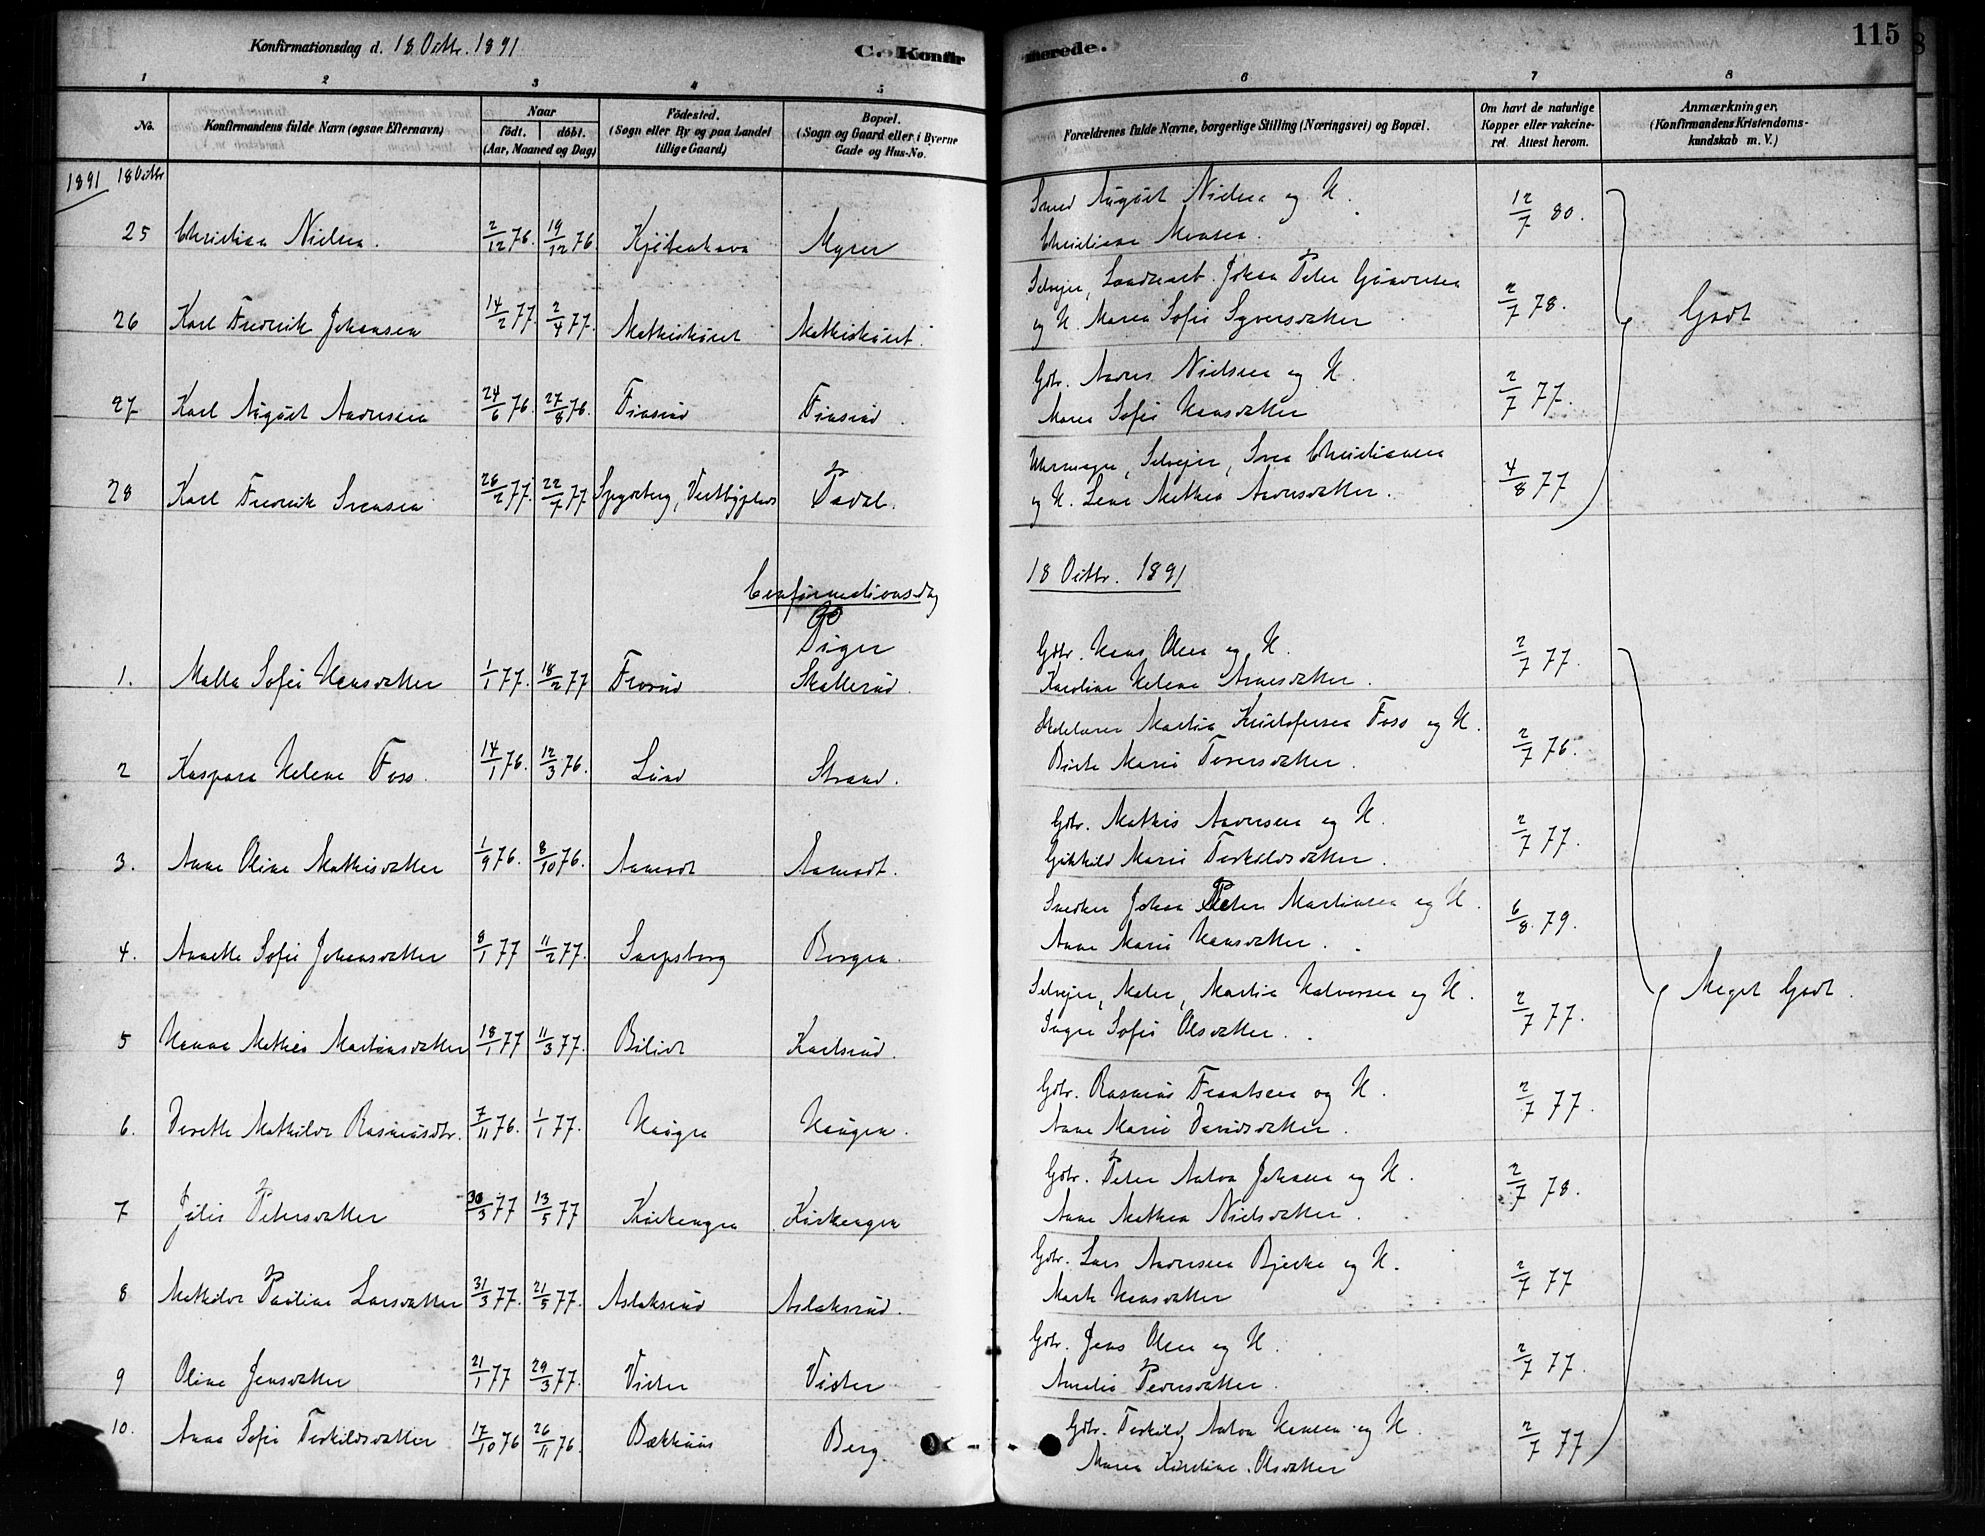 Konfirmationsdag d. 18 Octbr. 1891
C. Konfirmerede.
115
1 2 3 4 5 6 7 8
No.
Konfirmandens fulde Navn (ogsaa Efternavn)
Naar
födt. döbt.
(Aar, Maaned og Dag)
Födested.
(Sogn eller By og paa Landet
tillige Gaard)
Bopæl.
(Sogn og Gaard eller i Byerne
Gade og Hus-No.
Forældrenes fulde Navne, borgerlige Stilling (Næringsvei) og Bopæl.
Om havt de naturlige
Kopper eller vakcine-
ret. Attest herom.
Anmærkninger.
(Konfirmandens Kristendoms-
kundskab m. V.)
1891 18 Octbr
25 Christian Nielsen. 2/12 76. 19/12 76 Kjöbenhavn Myrer
Smed August Nielsen og H.
Christiane Monsen. 12/7 80.
26 Karl Fredrik Johansen 14/2 77. 2/4 77. Mathishuset Mathishuset.
Selveier, Johan Peter Gundersen
og H. Maren Sofie Syversdatter 2/7 78.
Godt
27 Karl August Andersen 24/6 76. 27/8 76. Finsrud Finsrud.
Gdbr. Anders Nielsen og H.
Maren Sofie Hansdatter 2/7 77.
28 Karl Fredrik Svensen 26/2 77. 22/7 77 Spydeberg, Vestbyplads
Uhrmager, Selveier, Sven Christiansen
og H. Lene Mathea Andersdatter. 4/8 77
Confirmationsdag 18 Octbr. 1891
Piger
1. Malla Sofie Hansdatter 1/1 77. 18/2 77 Frorud Skallerud.
Gdbr. Hans Olsen og H.
Karoline Helene Arnesdatter. 2/7 77.
2 Kaspara Helene Foss. 14/1 76. 12/3 76. Lund Strand.
Skolelærer Martin Kristofersen Foss og H.
Birthe Marie Toversdatter. 2/7 76.
3. Anne Oline Mathisdatter 1/9 76. 8/10 76. Aamodt Aamodt.
Gdbr. Mathis Andersen og H.
Marie Terkildsdatter. 2/7 77.
4. Annette Sofie Johansdatter 8/1 77 11/2 77. Sarpsborg Borgen.
Snedker Johan Peter Martinsen og H.
Anne Marie Hansdatter. 6/8 79.
5 Hanna Mathea Martinsdatter 18/1 77 11/3 77. Bilidt Karlsrud.
Selveier, Maler, Martin Halvorsen og H.
Inger Sofie Olsdatter. 2/7 77.
Meget Godt.
6. Dorette Mathilde Rasmusdtr. 7/11 76. 1/1 77. Haugen Haugen.
Gdbr. Rasmus Frantsen og H.
Anne Marie Davidsdatter. 2/7 77.
7 Julie Petersdatter 30/3 77 13/5 77 Kirkengen Kirkengen
Gdbr. Peter Anton Johnsen og H.
Anne Mathea Nielsdatter. 2/7 78.
8 Mathilde Pauline Larsdatter 31/3 77. 21/5 77. Aslaksrud Aslaksrud.
Gdbr. Lars Andersen Bjerke og H.
Marte Hansdatter 2/7 77
9 Oline Jensdatter 21/1 77 29/3 77. Vister Vister
Gdbr. Jens Olsen og H.
Amalie Pedersdatter. 2/7 77.
10. Anna Sofie Terkildsdatter 17/10 76 26/11 76. Bækhus Berg
Gdbr. Terkild Anton Hansen og H.
Maren Kirstine Olsdatter 2/7 77